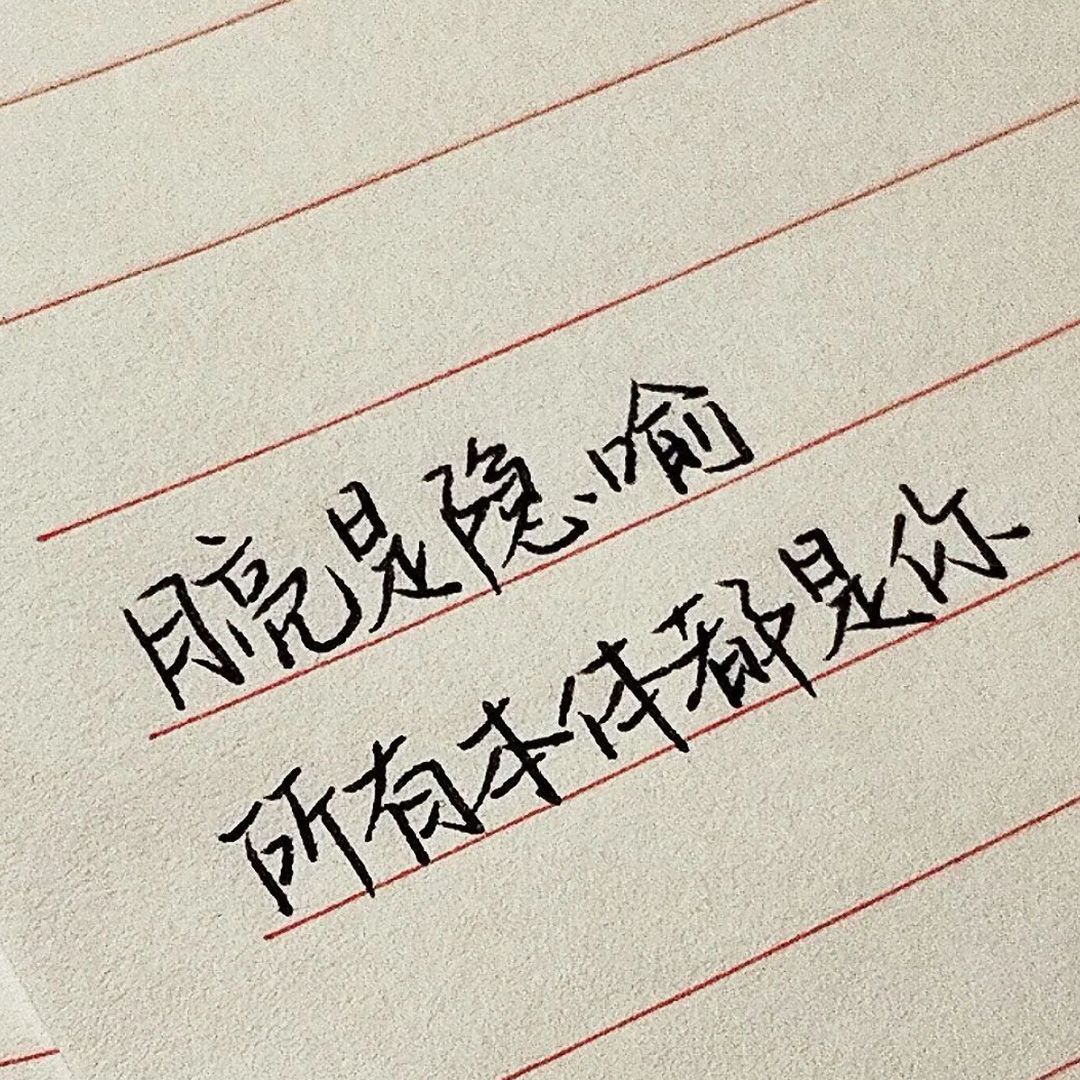 月亮是隐喻
所有本体都是你